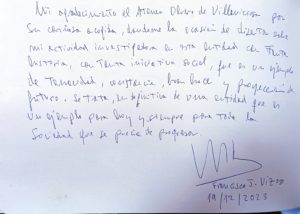 Mi agradecimiento al Ateneo Obrero de Villaviciosa por
su cariñosa acogida, dándome la ocasión de disertar sobre
mi actividad investigadora en esta entidad con tanta
historia, con tanta iniciativa social, que es un ejemplo
de tenacidad, constancia, buen hacer y proyección de
futuro. Se trata, en definitiva de una entidad que es
un ejemplo para hoy y siempre para toda la
sociedad que se precie de progresar.
Francisco J.
19/12/2023